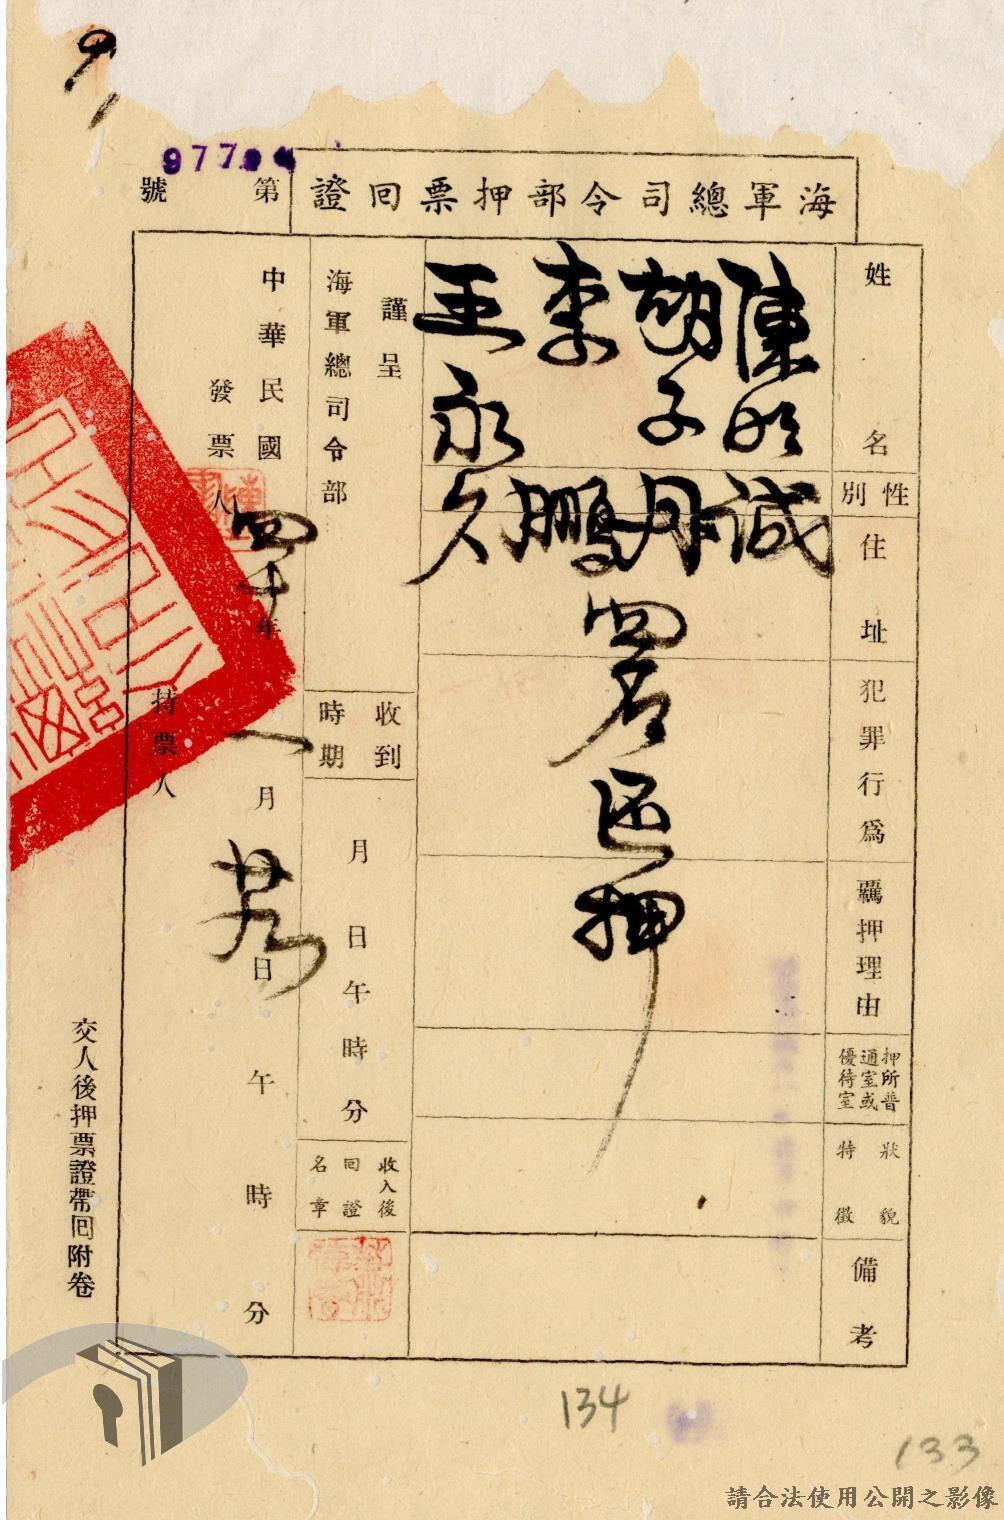 977
海軍總司令部押票回證
第 號
姓名
性別
住址
犯罪行為
羈押理由
押所普通室或優待室
狀貌特徵
備考
陳明誠
胡子丹
李鵬
王永久
四名還押
謹呈
海軍總司令部
收到時期
月日午時分
收入後回證名章
中華民國四十年一月廿九日午時分
發票人
持票人
交人後押票證帶回附卷
134
133
請合法使用公開之影像